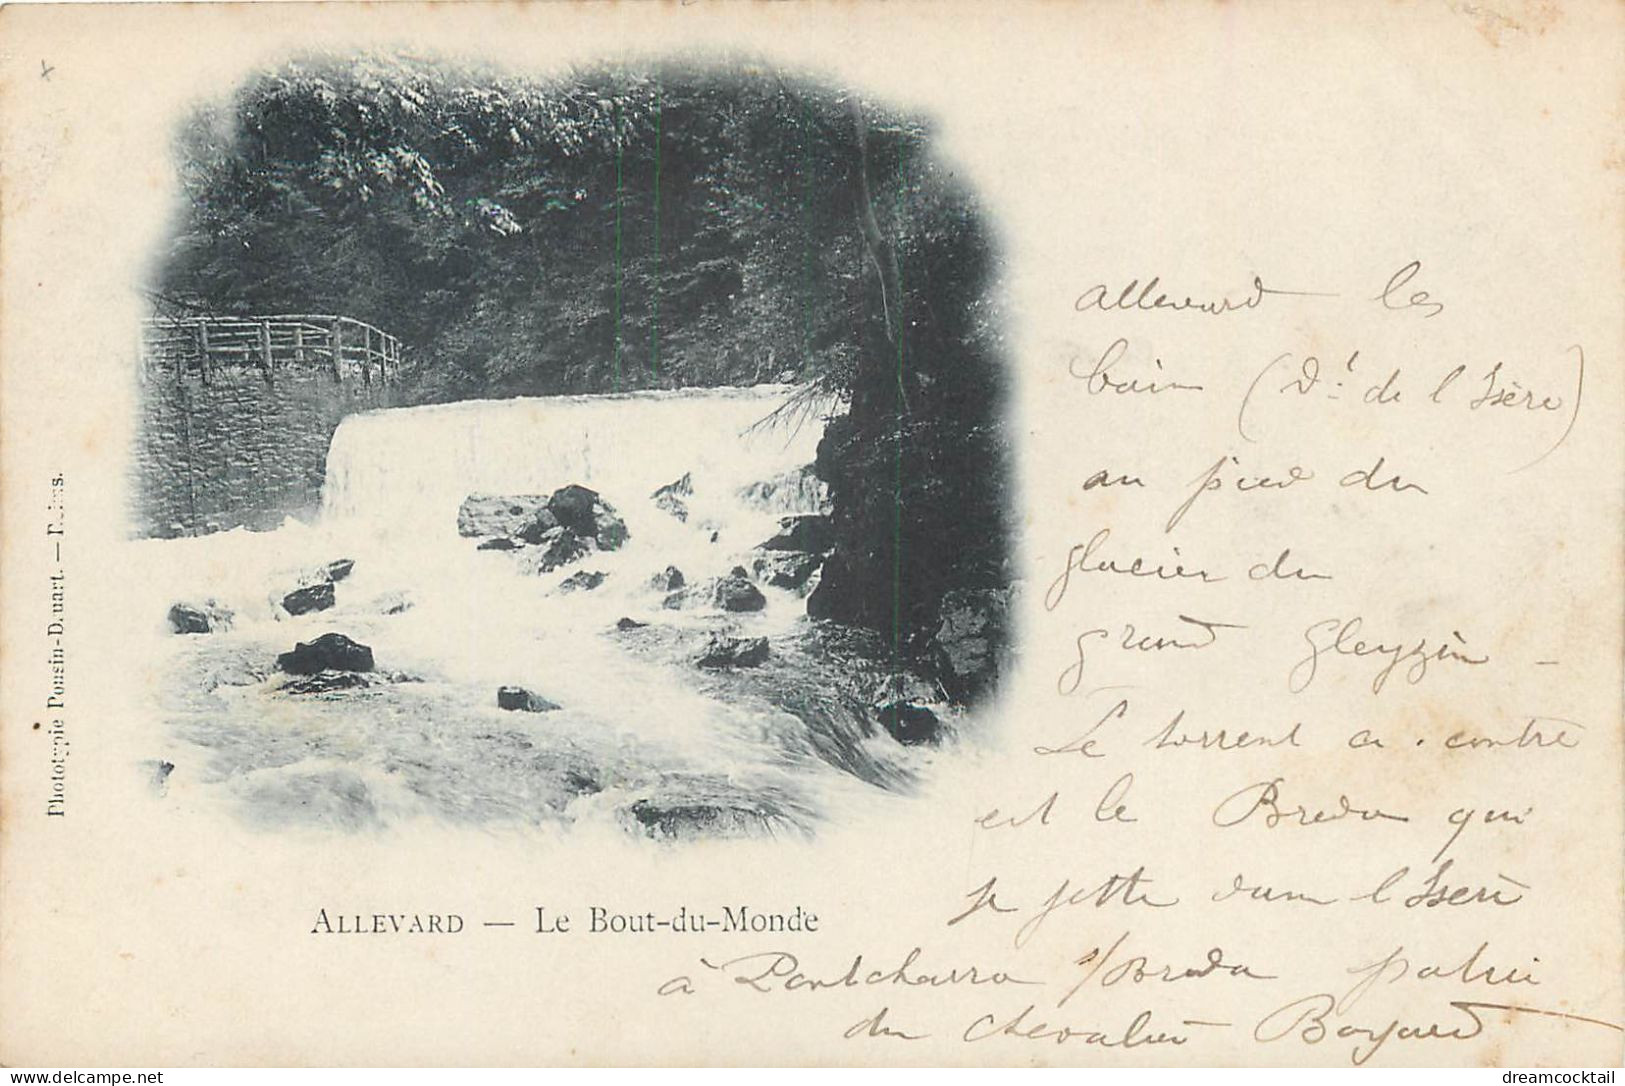 Phototypie Pousin-Druart. — Reims.
ALLEVARD — Le Bout-du-Monde
allevard les
bain (dt de l'Isère)
au pied du
glacier du
grand Gleyzin –
Le torrent ci-contre
est le Breda qui
se jette dans l'Isère
à Pontcharra s/Breda patrie
du chevalier Bayard
dreamcocktail